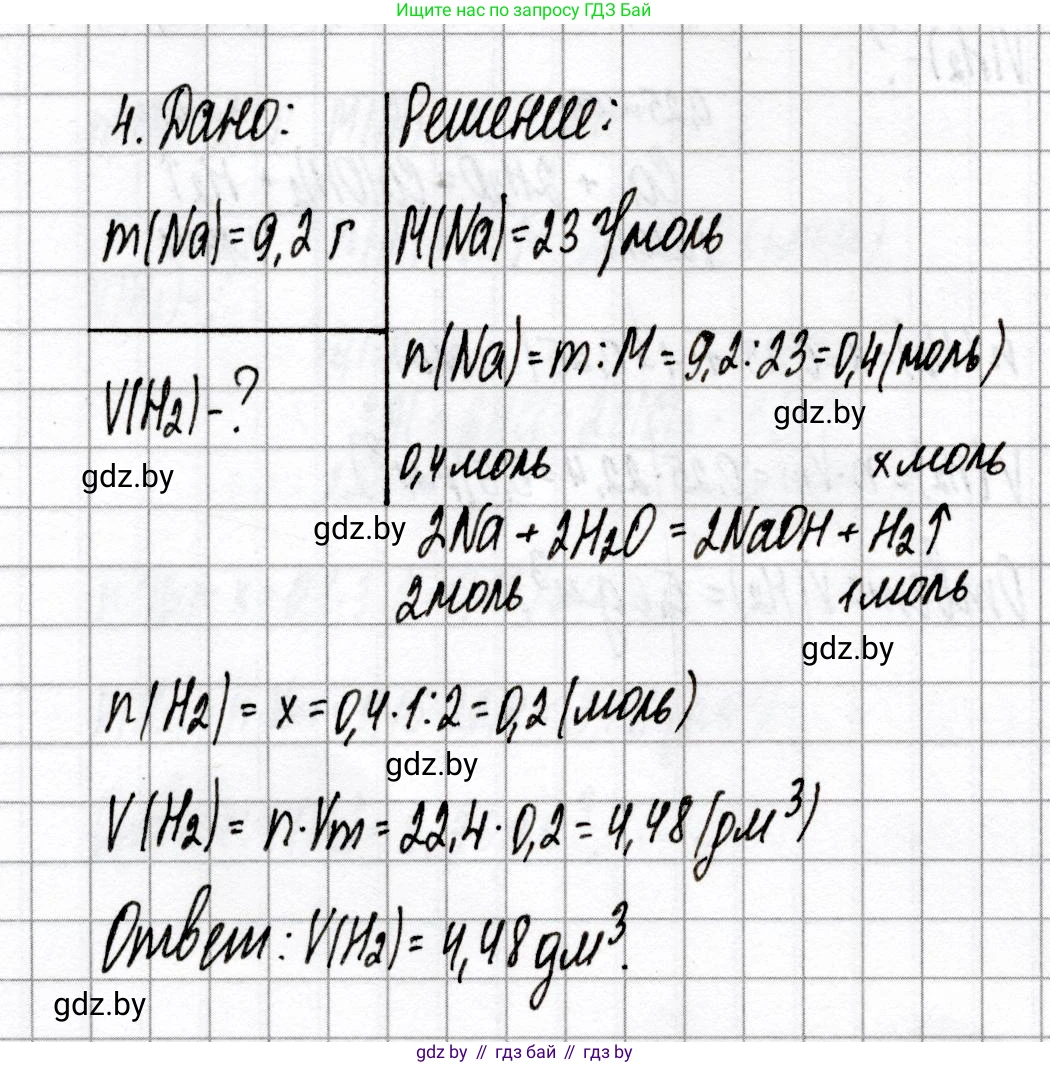 Ищите нас по запросу ГДЗ Бай
4. Дано:
Решение:
m(Na)=9,2 г
M(Na)=23 г/моль
n(Na)=m:M=9,2:23=0,4(моль)
V(H₂)-?
gdz.by
gdz.by
0,4 моль x моль
gdz.by
2Na + 2H₂O = 2NaOH + H₂↑
2 моль 1 моль
gdz.by
n(H₂) = x = 0,4·1:2 = 0,2 (моль)
gdz.by
V(H₂) = n·Vm = 22,4·0,2 = 4,48 (дм³)
Ответ: V(H₂) = 4,48 дм³.
gdz.by
gdz by // гдз бай // гдз by